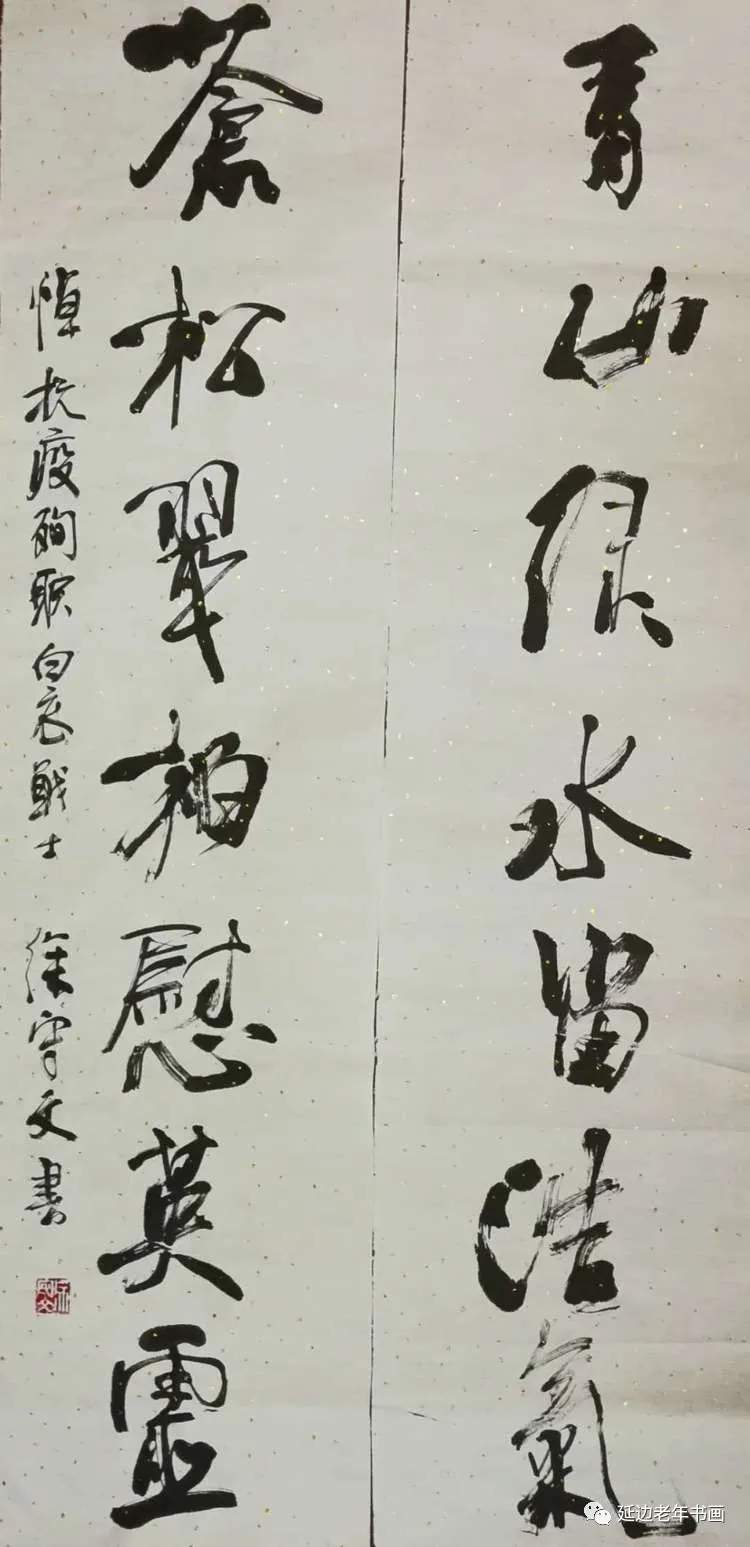 青山绿水留浩氣
蒼松翠柏慰英靈
悼抗疫殉职白衣戰士 徐守文書
延边老年书画